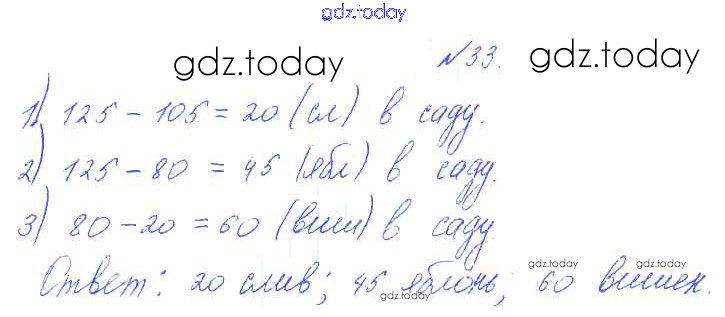 gdz.today
№33.
gdz.today gdz.today
1) 125 - 105 = 20 (сл) в саду.
2) 125 - 80 = 45 (ябл) в саду.
3) 80 - 20 = 60 (виш) в саду
gdz.today gdz.today
Ответ: 20 слив; 45 яблонь; 60 вишен.
gdz.today